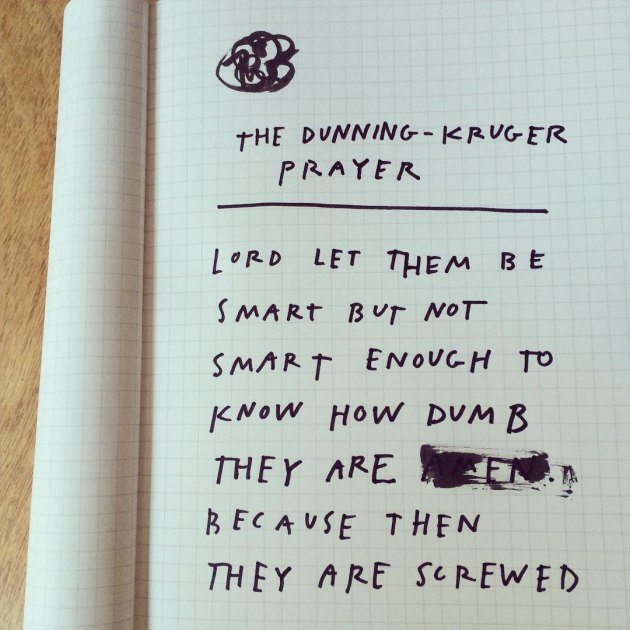 THE DUNNING-KRUGER
PRAYER
LORD LET THEM BE
SMART BUT NOT
SMART ENOUGH TO
KNOW HOW DUMB
THEY ARE AMEN.
BECAUSE THEN
THEY ARE SCREWED